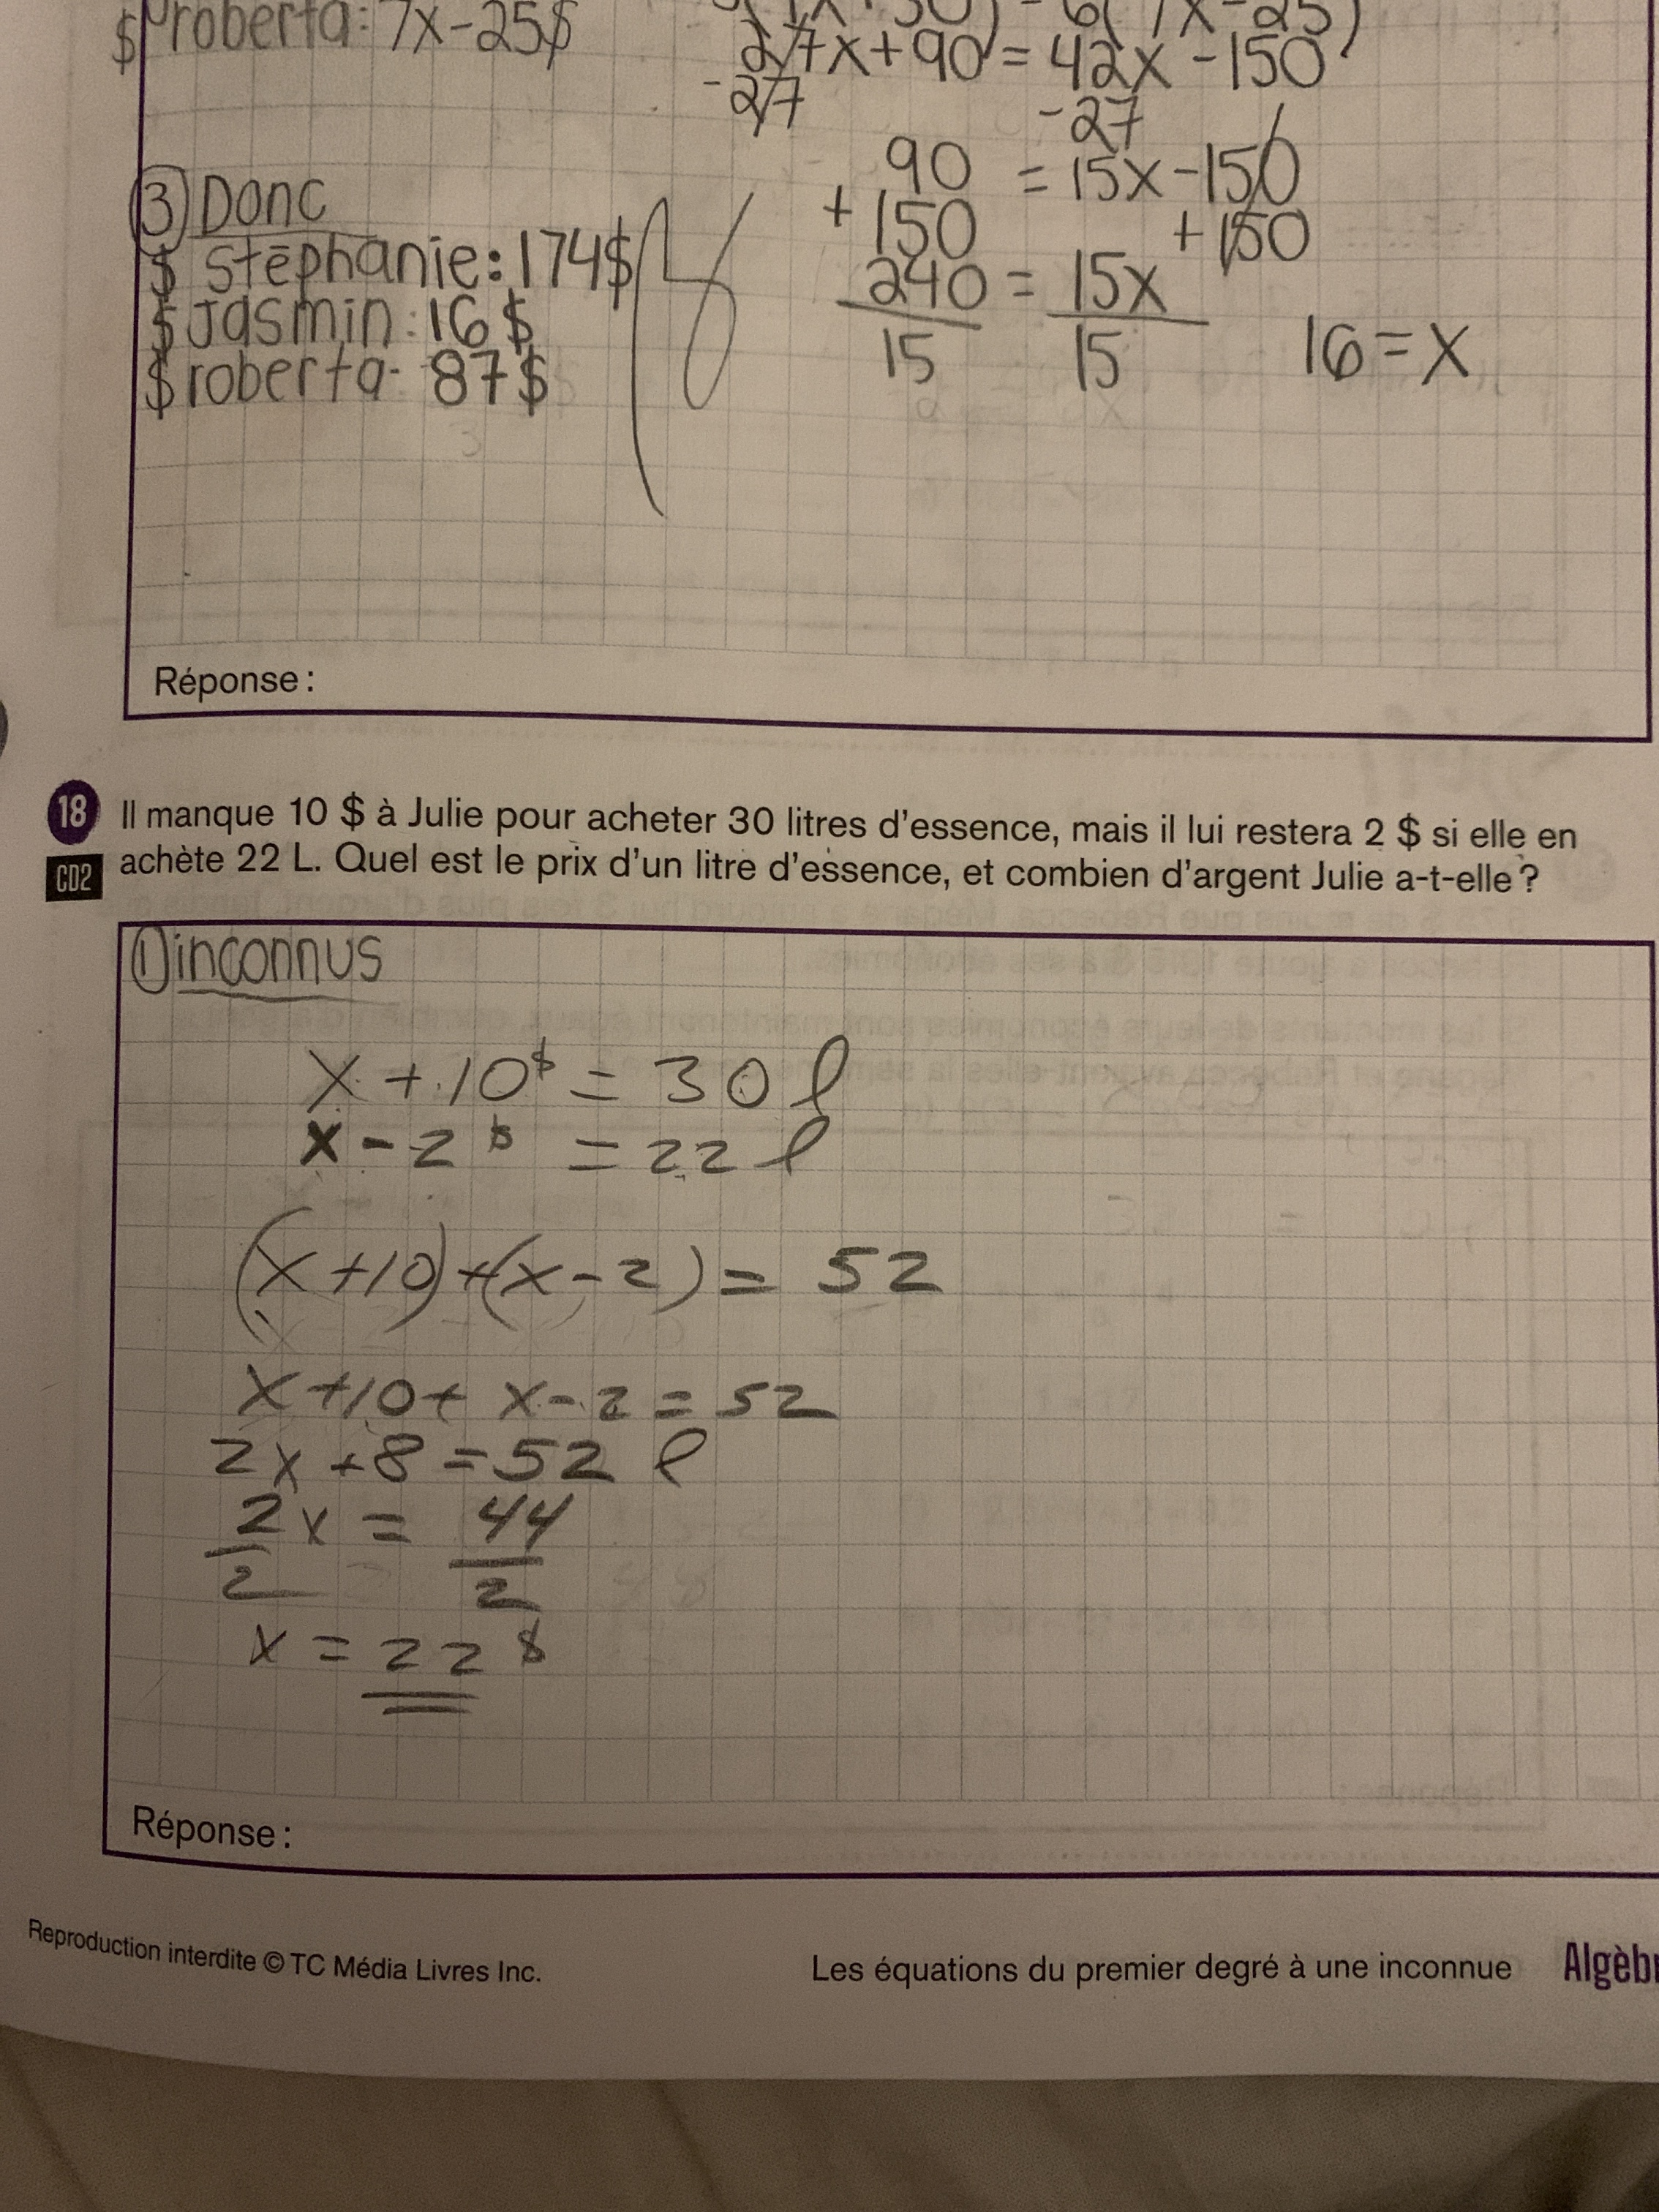 $ roberta: 7x-25$
27x+90 = 42x-150
-27 -27
90 = 15x-150
+150 +150
240 = 15x
15 15
16=x
③ Donc
$ stéphanie: 174$
$ Jasmin: 16$
$ roberta- 87$
Réponse :
18 Il manque 10 $ à Julie pour acheter 30 litres d'essence, mais il lui restera 2 $ si elle en
CD2 achète 22 L. Quel est le prix d'un litre d'essence, et combien d'argent Julie a-t-elle ?
① inconnus
x + 10$ = 30 l
x - 2$ = 22 l
(x+10)+(x-2) = 52
x+10+ x-2 = 52
2x+8 = 52 l
2x = 44
2 2
x = 22 $
Réponse :
Reproduction interdite © TC Média Livres Inc.
Les équations du premier degré à une inconnue